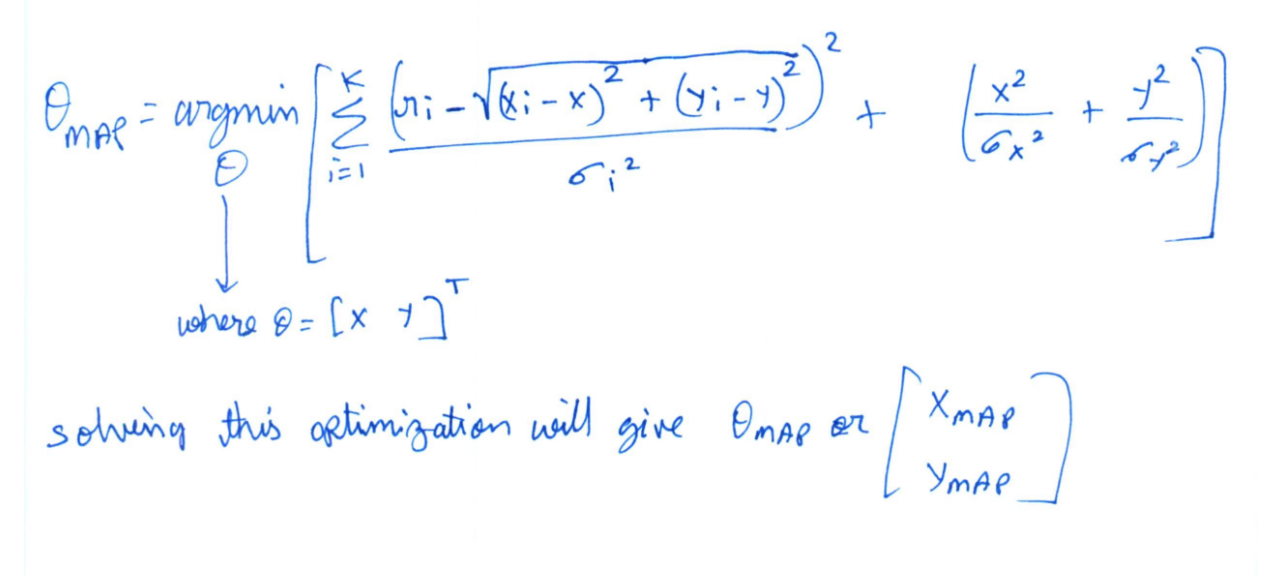 θ_MAP = argmin_θ [ Σ_{i=1}^{K} (r_i - √((x_i - x)² + (y_i - y)²))² / σ_i² + (x²/σ_x² + y²/σ_y²) ]
where θ = [x y]^T
solving this optimization will give θ_MAP or [x_MAP y_MAP]